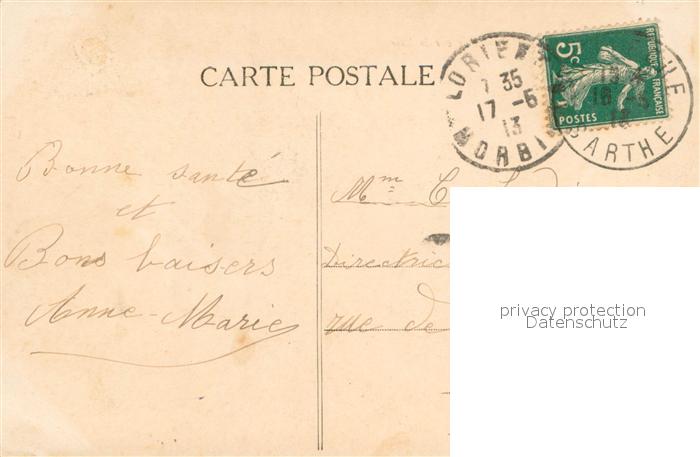 CARTE POSTALE
LORIENT
7 35
17 -5
13
MORBI
5c
REPUBLIQUE FRANÇAISE
POSTES
SARTHE
Bonne santé
et
Bons baisers
Anne-Marie
Mme C
Directric
rue de
privacy protection
Datenschutz